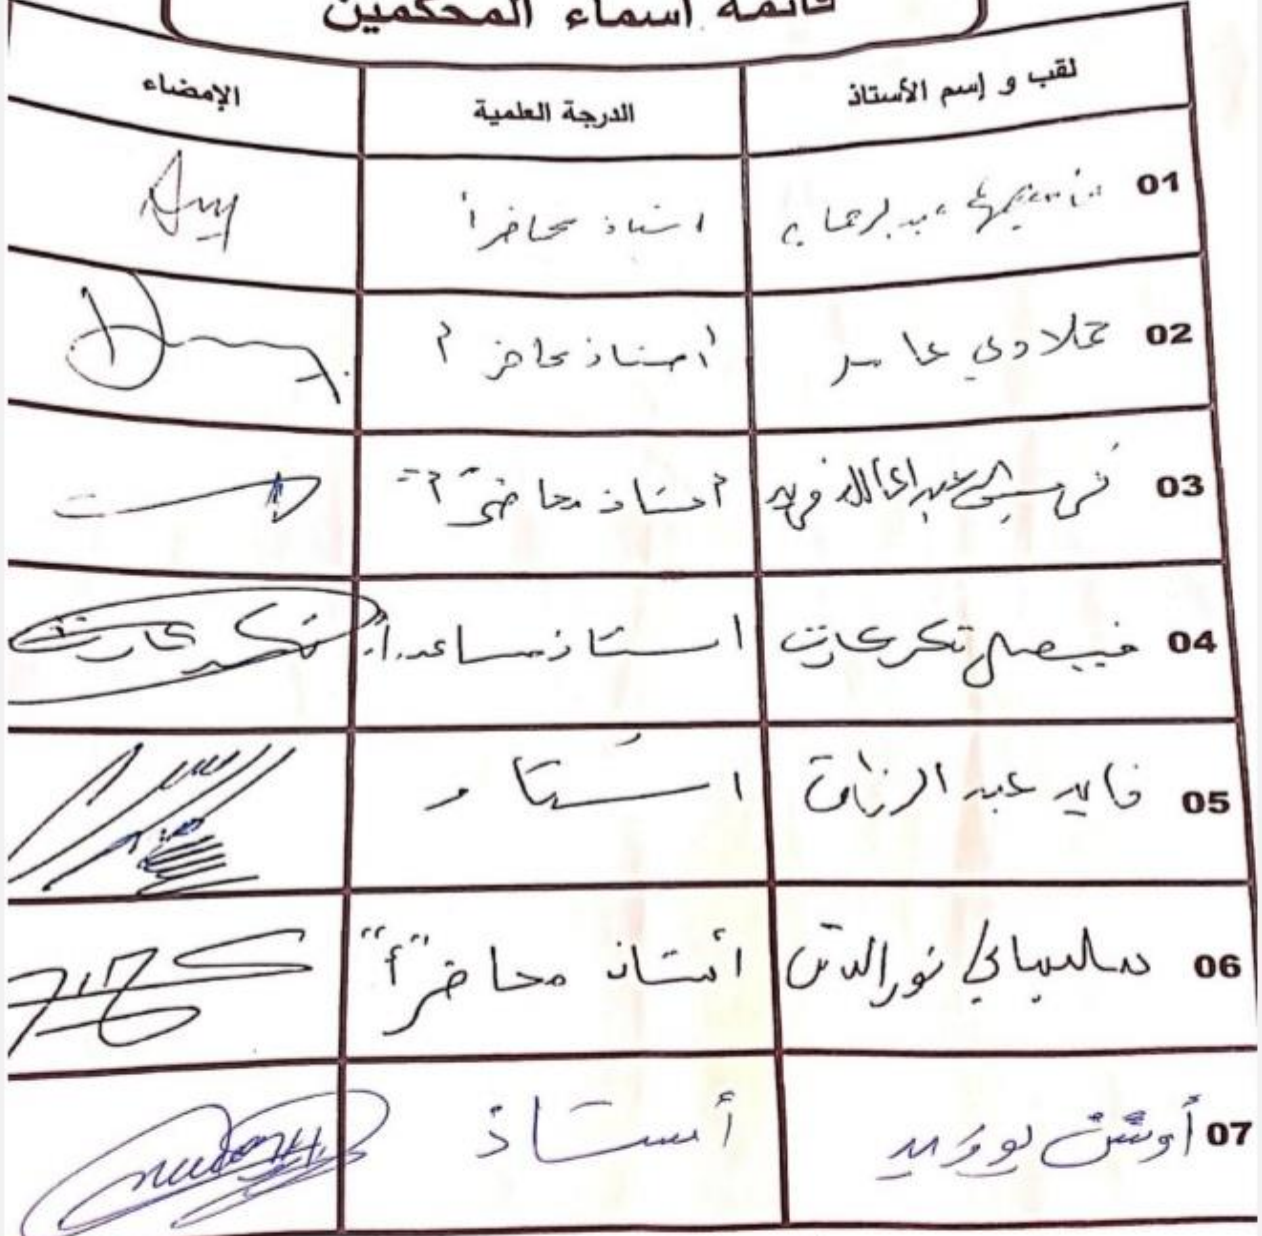 قائمة أسماء المحكمين
لقب و إسم الأستاذ الدرجة العلمية الإمضاء
01 استاذ محاضر أ
02 حملاوي عامر أستاذ محاضر أ
03 عبد فريد أستاذ محاضر "أ"
04 فيصل تكركارت استاذ مساعد.أ. تكركارت
05 قايد عبد الرزاق استاذ
06 سليماني نور الدين أستاذ محاضر "أ"
07 أوشن بوزيد أستاذ